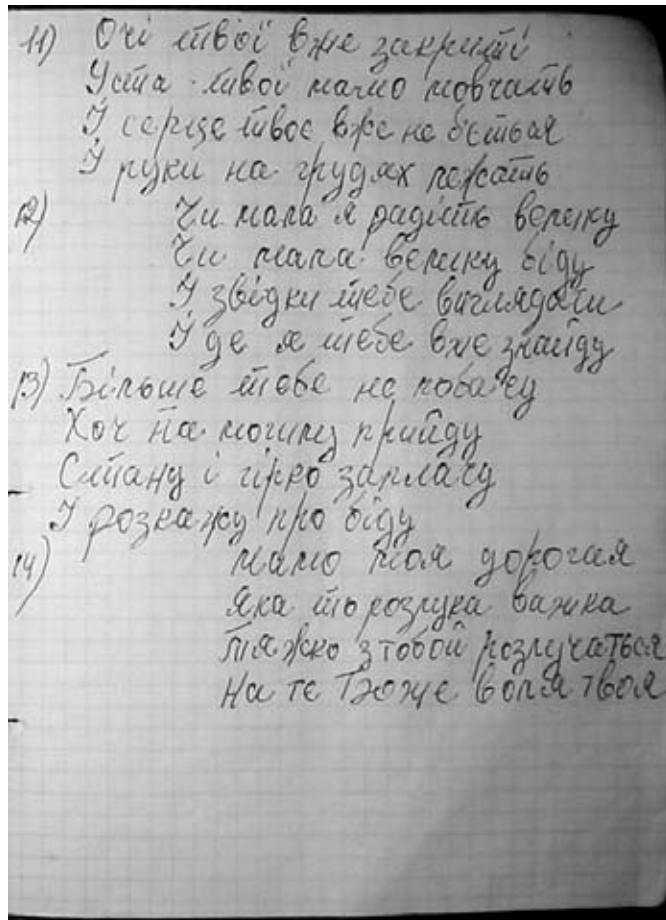 11) Очі твої вже закриті
Уста твої мамо мовчать
І серце твоє вже не бється
І руки на грудях лежать
12) Чи мала я радість велику
Чи мала велику біду
І звідки тебе виглядати
І де я тебе вже знайду
13) Більше тебе не побачу
Хоч на могилу прийду
Стану і гірко заплачу
І розкажу про біду
14) Мамо моя дорогая
Яка то розлука важка
Тяжко з тобой розлучаться
На те Боже воля твоя